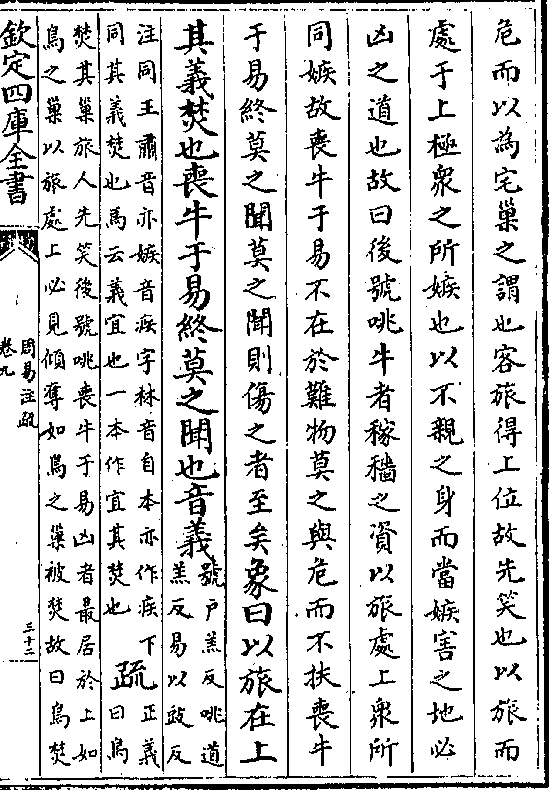 危而以為宅巢之謂也客旅得上位故先笑也以旅而
處于上極衆之所嫉也以不親之身而當嫉害之地必
凶之道也故曰後號咷牛者稼穡之資以旅處上衆所
同嫉故喪牛于易不在於難物莫之與危而不扶喪牛
于易終莫之聞莫之聞則傷之者至矣象曰以旅在上
其義焚也喪牛于易終莫之聞也音義
號户羔反咷道
羔反易以豉反
注同王肅音亦嫉音疾字林音自本亦作疾下
同其義焚也馬云義宜也一本作宜其焚也
疏
正義
曰鳥
焚其巢旅人先笑後號咷喪牛于易凶者最居於上如
鳥之巢以旅處上必見傾奪如鳥之巢被焚故曰鳥焚
欽定四庫全書
周易注疏
卷九
三十二